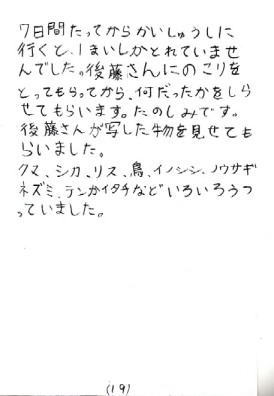 7日間たってからかいしゅうしに
行くと、1まいしかとれていませ
んでした。後藤さんにのこりを
とってもらってから、何だったかをしら
せてもらいます。たのしみです。
後藤さんが写した物を見せても
らいました。
クマ、シカ、リス、鳥、イノシシ、ノウサギ
ネズミ、テンかイタチなどいろいろうつ
っていました。
(19)